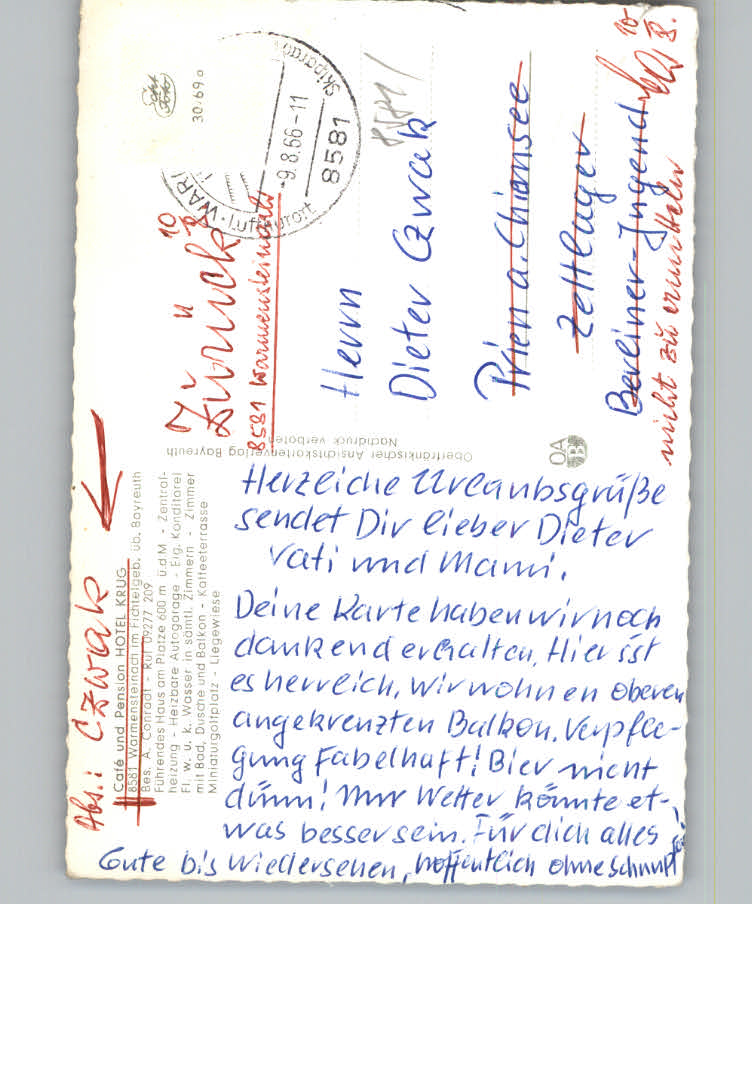 Abs.: Czwak
Café und Pension HOTEL KRUG
8581 Warmensteinach im Fichtelgeb. üb. Bayreuth
Bes. A. Conradt - Ruf 09277 209
Führendes Haus am Platze 600 m ü.d.M - Zentral-
heizung - Heizbare Autogarage - Eig. Konditorei
Fl. w. u. k. Wasser in sämtl. Zimmern - Zimmer
mit Bad, Dusche und Balkon - Kaffeeterrasse
Miniaturgolfplatz - Liegewiese
Herzliche Urlaubsgrüße
sendet Dir lieber Dieter
Vati und Mami.
Deine Karte haben wir noch
dankend erhalten, Hier ist
es herrlich, wir wohnen oberen
angekreuzten Balkon. Verpfle-
gung Fabelhaft! Bier nicht
dünn! Nur Wetter könnte et-
was besser sein. Für dich alles
Gute bis Wiedersehen, hoffentlich ohne Schnupf
Oberfränkischer Ansichtskartenverlag Bayreuth
Nachdruck verboten
OA
30/69 a
WAR
Luftkurort
-9.8.66-11
8581
Zurück
8581 Warmensteinach
8581
Herrn
Dieter Czwak
Prien a. Chiemsee
Zeltlager
Berliner-Jugend
nicht zu ermitteln
10
8.